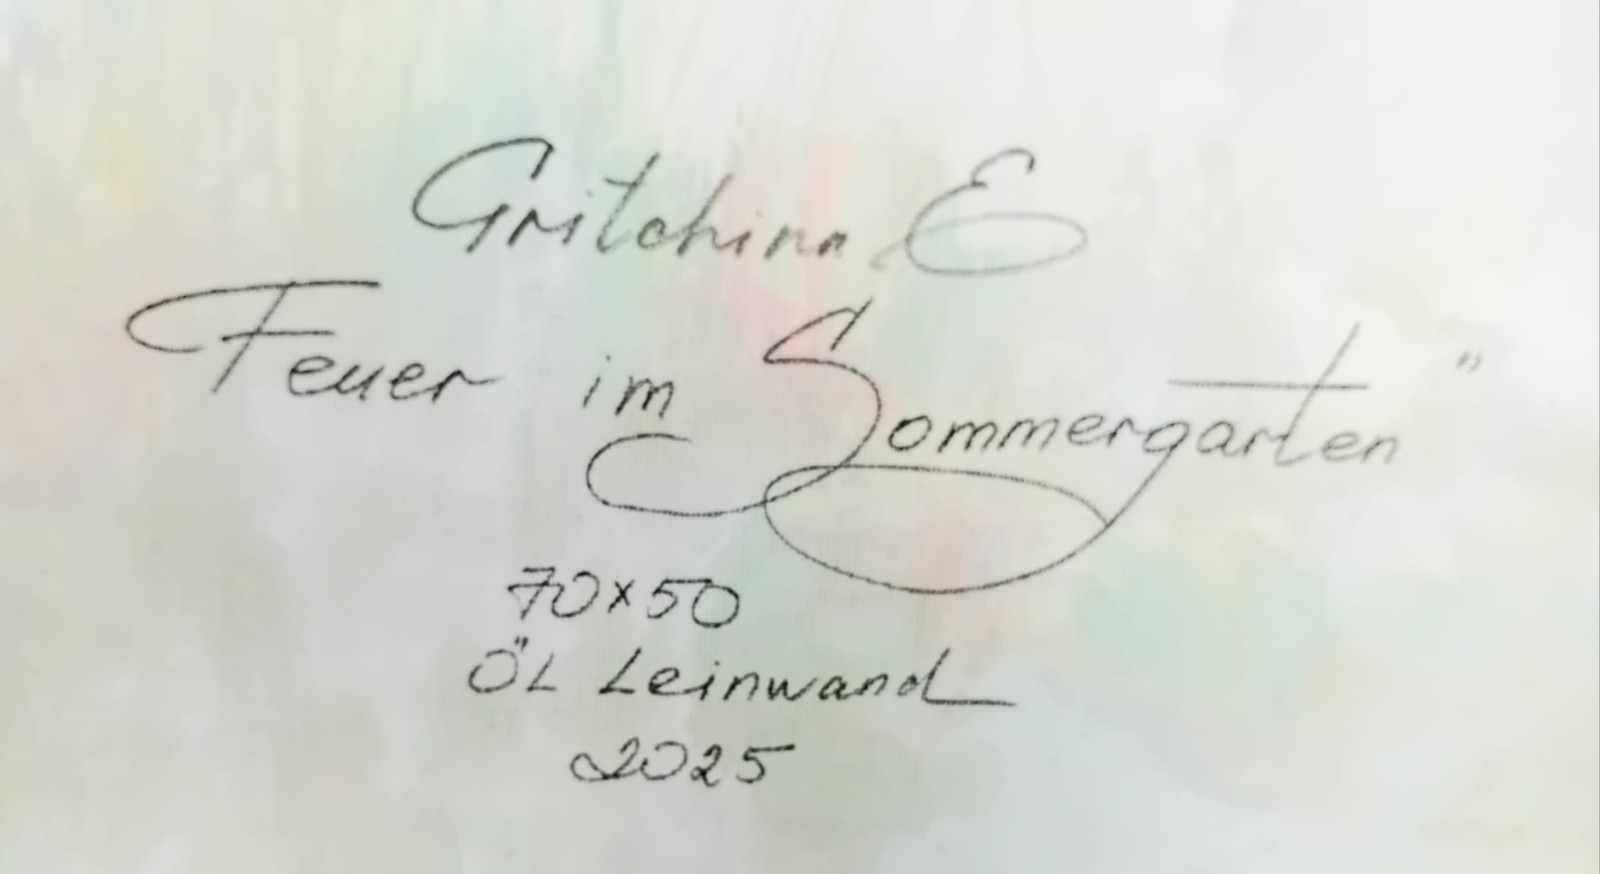 Gritchina E
Feuer im Sommergarten"
70x50
ÖL Leinwand
2025